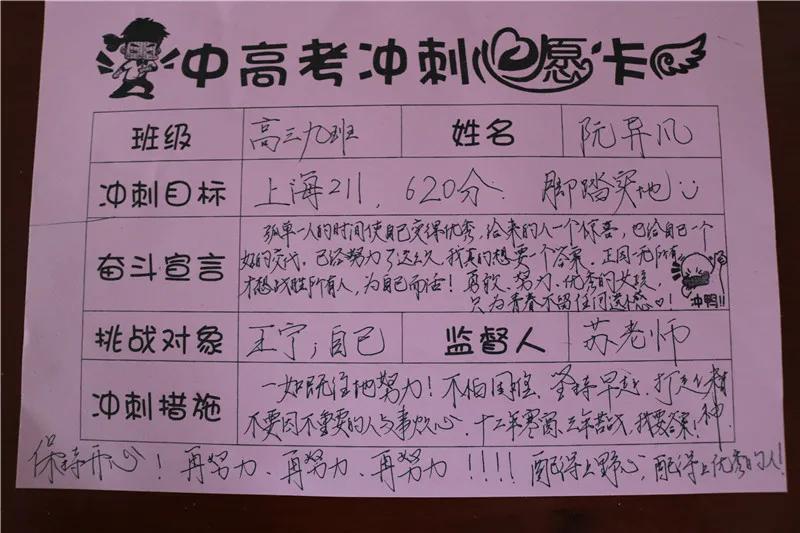 中高考冲刺心愿卡
班级 高三九班 姓名 阮异凡
冲刺目标 上海211,620分. 脚踏实地
奋斗宣言 孤单一人的时间使自己变得优秀,给来的人一个惊喜,也给自己一个
好的交代,已经努力了这么久,我真的想要一个答案。正因一无所有
才想战胜所有人,为自己而活!勇敢、努力、优秀的女孩,
只为青春不留任何遗憾♡!
冲鸭!!
挑战对象 王宁;自己 监督人 苏老师
冲刺措施 一如既往地努力!不怕困难、坚持早起,打起精
神
不要因不重要的人与事烦心,十二年寒窗、三年苦战,我要答案!
保持开心!再努力、再努力、再努力!!!!配得上野心,配得上优秀的人!